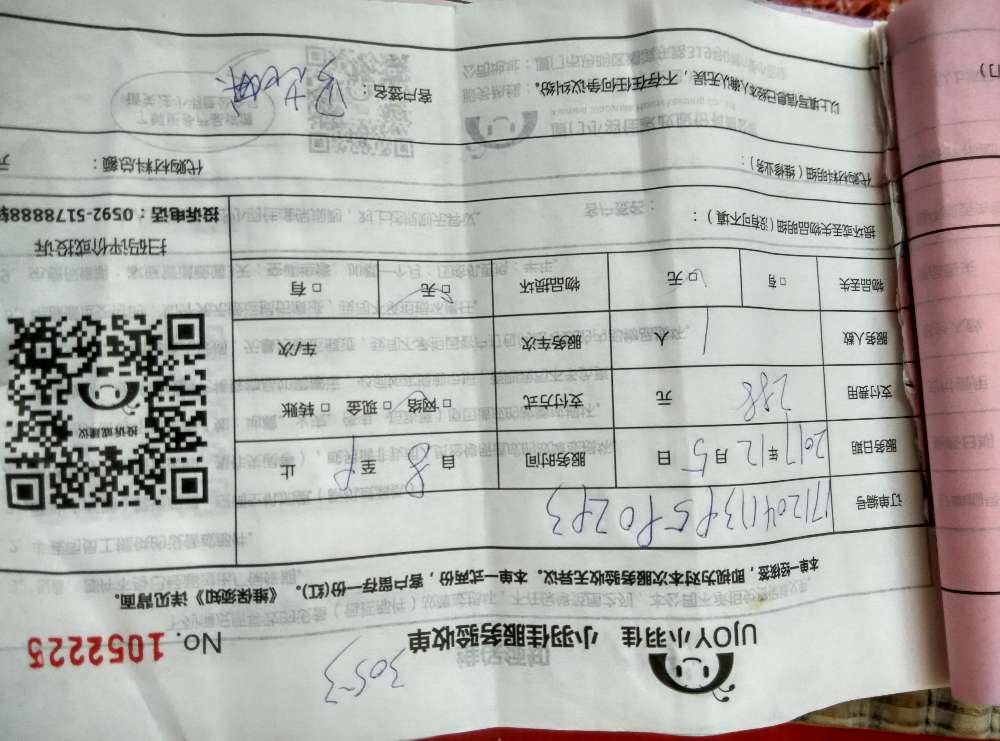 3053
UJOY小羽佳 小羽佳服务验收单 No. 1052225
本单一经核签，即视为对本次服务验收无异议。本单一式两份，客户留存一份(红)。《维保须知》详见背面。
订单编号
服务日期 2017年12月5日 服务时间 自8至9止
支付费用 288元 支付方式 □网络 □现金 □转账
服务人数 1人 服务车次 车/次
物品丢失 □有 □无 物品损坏 □无 □有
投诉或建议
扫码评价或投诉
投诉电话：0592-5178888转
损坏或丢失物品明细(没有可不填)：
代购材料明细（维修业务）： 代购材料总额： 元
以上填写信息已经本人确认无误，不存在任何争议纠纷。 客户签名：